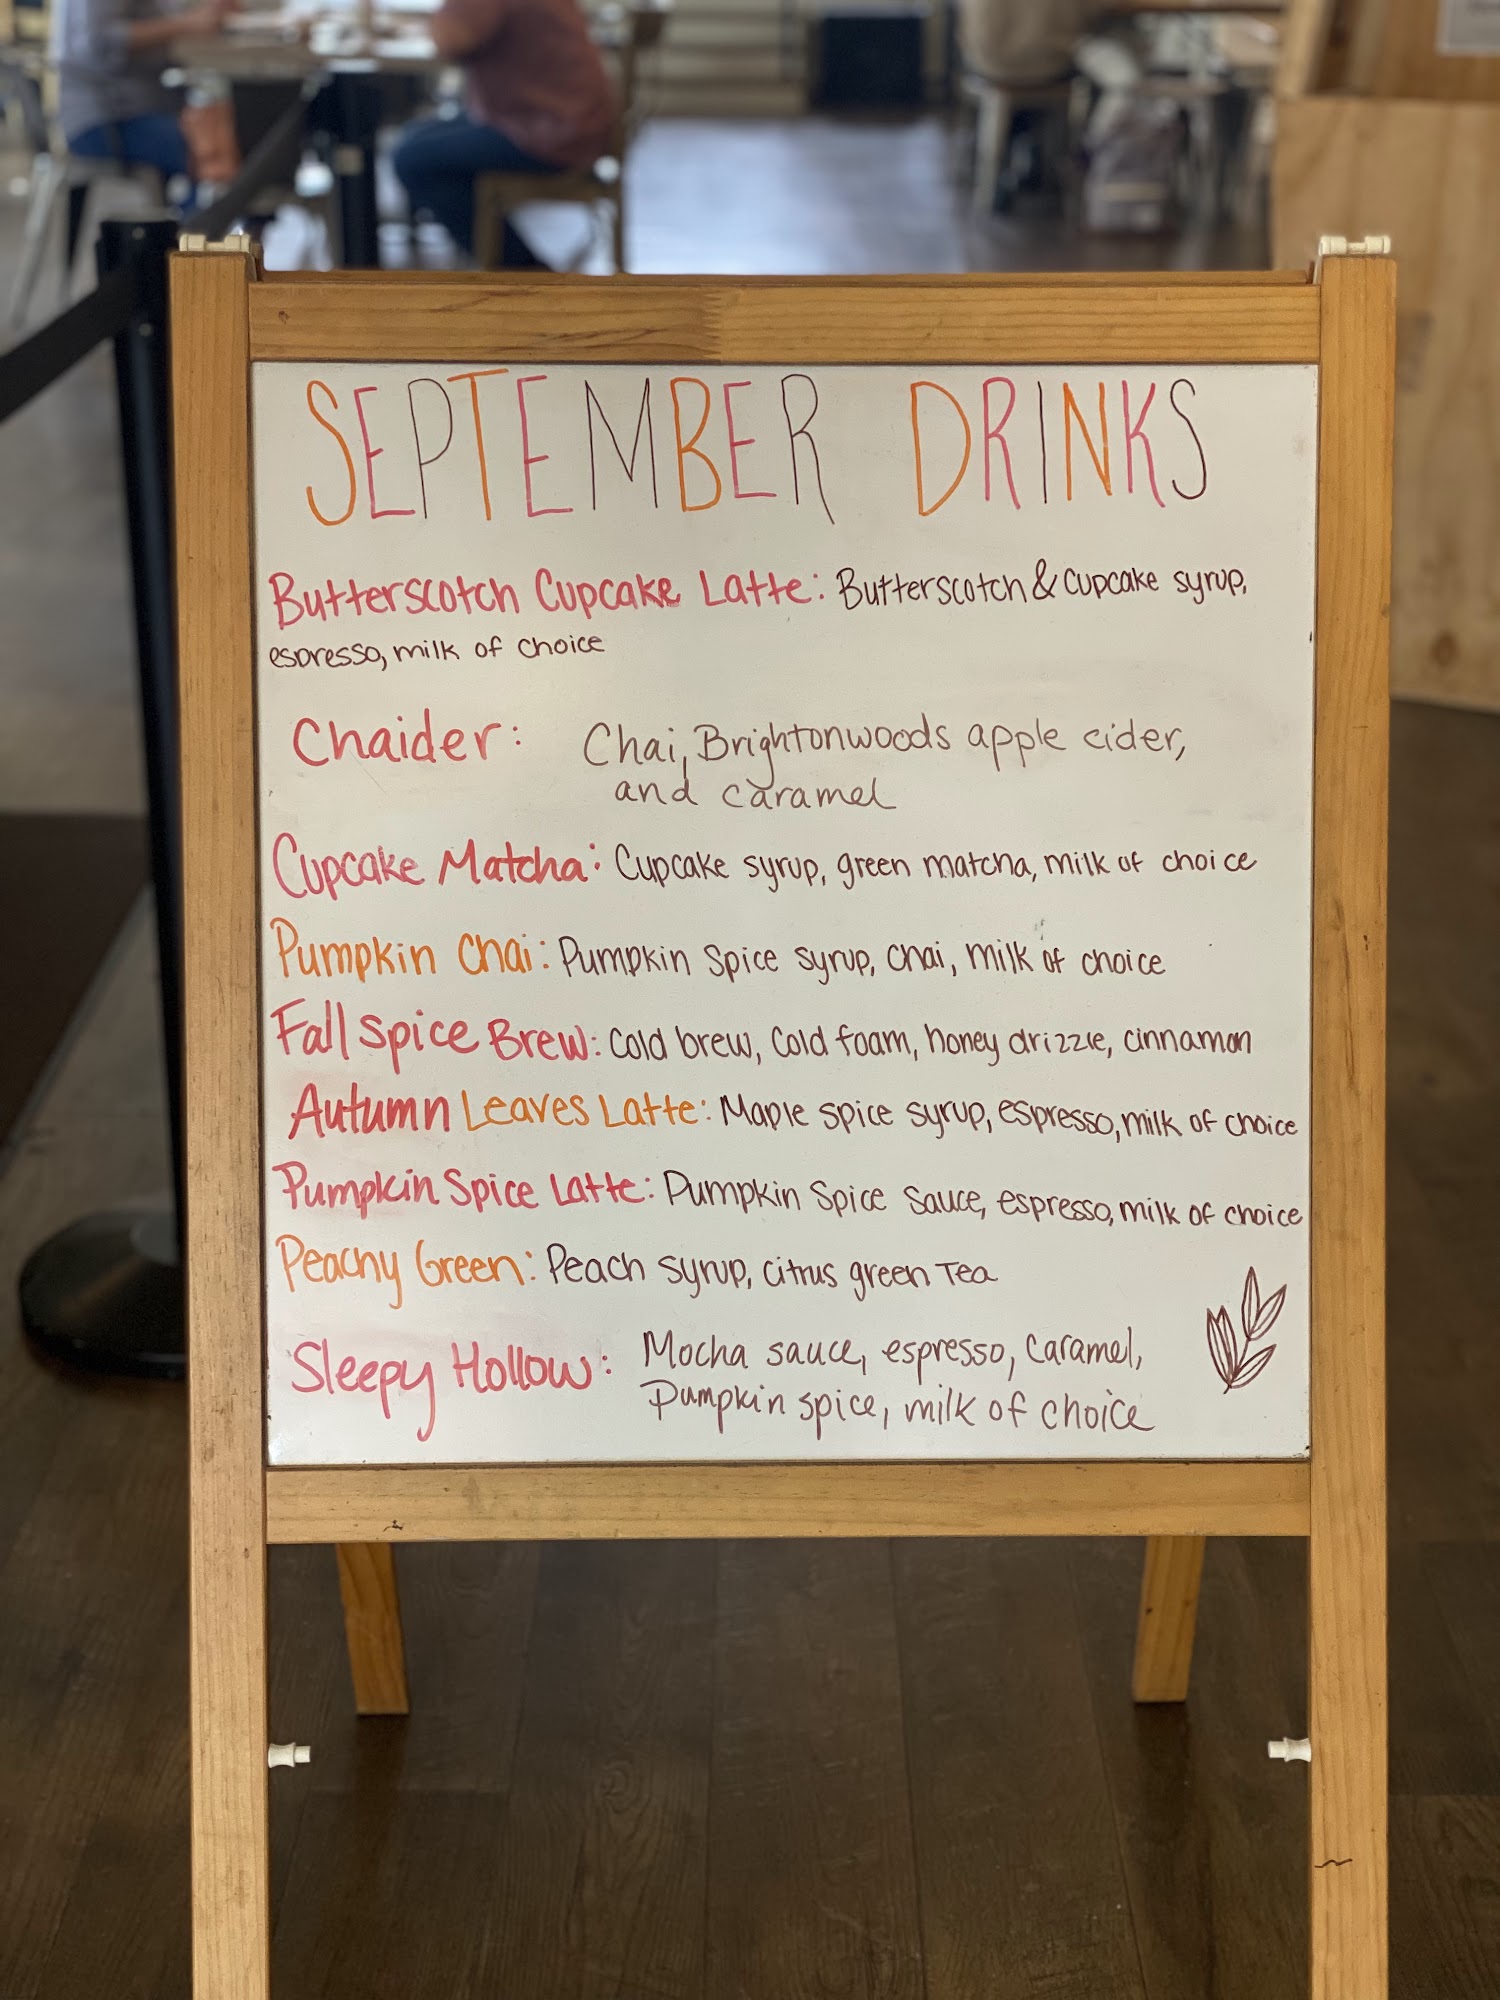 SEPTEMBER DRINKS
Butterscotch Cupcake Latte: Butterscotch & Cupcake syrup,
espresso, milk of choice
Chaider: Chai, Brightonwoods apple cider,
and caramel
Cupcake Matcha: Cupcake syrup, green matcha, milk of choice
Pumpkin Chai: Pumpkin Spice syrup, chai, milk of choice
Fall Spice Brew: Cold brew, Cold foam, honey drizzle, cinnamon
Autumn Leaves Latte: Maple spice syrup, espresso, milk of choice
Pumpkin Spice Latte: Pumpkin Spice Sauce, espresso, milk of choice
Peachy Green: Peach syrup, citrus green Tea
Sleepy Hollow: Mocha sauce, espresso, Caramel,
Pumpkin spice, milk of choice